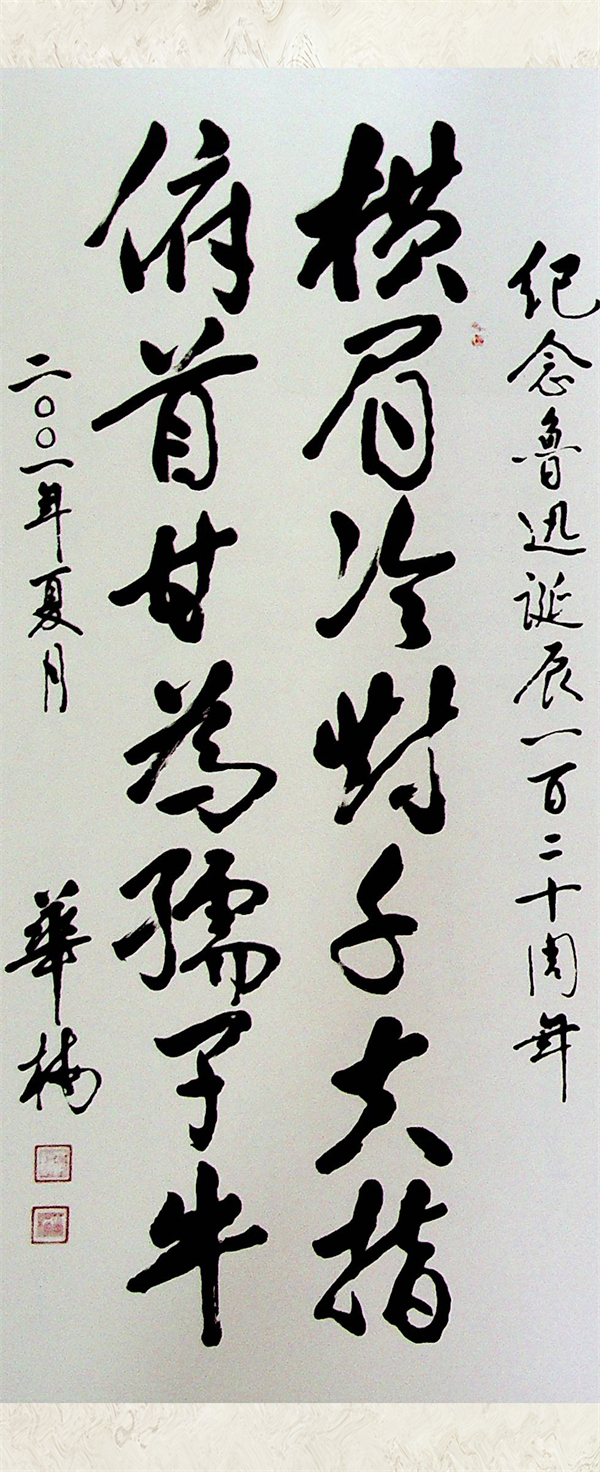 纪念鲁迅诞辰一百二十周年
横眉冷對千夫指
俯首甘為孺子牛
二〇〇一年夏月
華梅